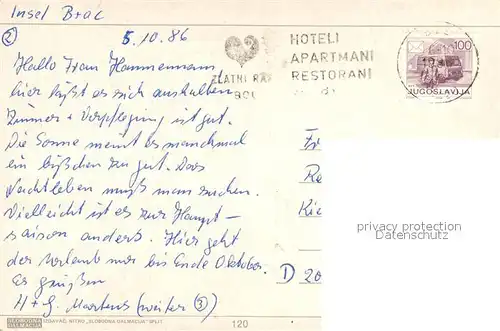 Insel Brač
②
5.10.86
Hallo Frau Hannemann,
hier läßt es sich aushalten
Zimmer + Verpflegung ist gut.
Die Sonne meint es manchmal
ein bißchen zu gut. Das
Nachtleben muß man suchen.
Vielleicht ist es zur Haupt-
saison anders. Hier geht
der Urlaub nur bis Ende Oktober.
Es grüßen
H + G. Martens (weiter ③)
ZLATNI RAT
BOL
HOTELI
APARTMANI
RESTORANI
100
JUGOSLAVIJA
Fr
Re
Kie
D 20
privacy protection
Datenschutz
SLOBODNA DALMACIJA
IZDAVAČ: NITRO „SLOBODNA DALMACIJA“ SPLIT
120